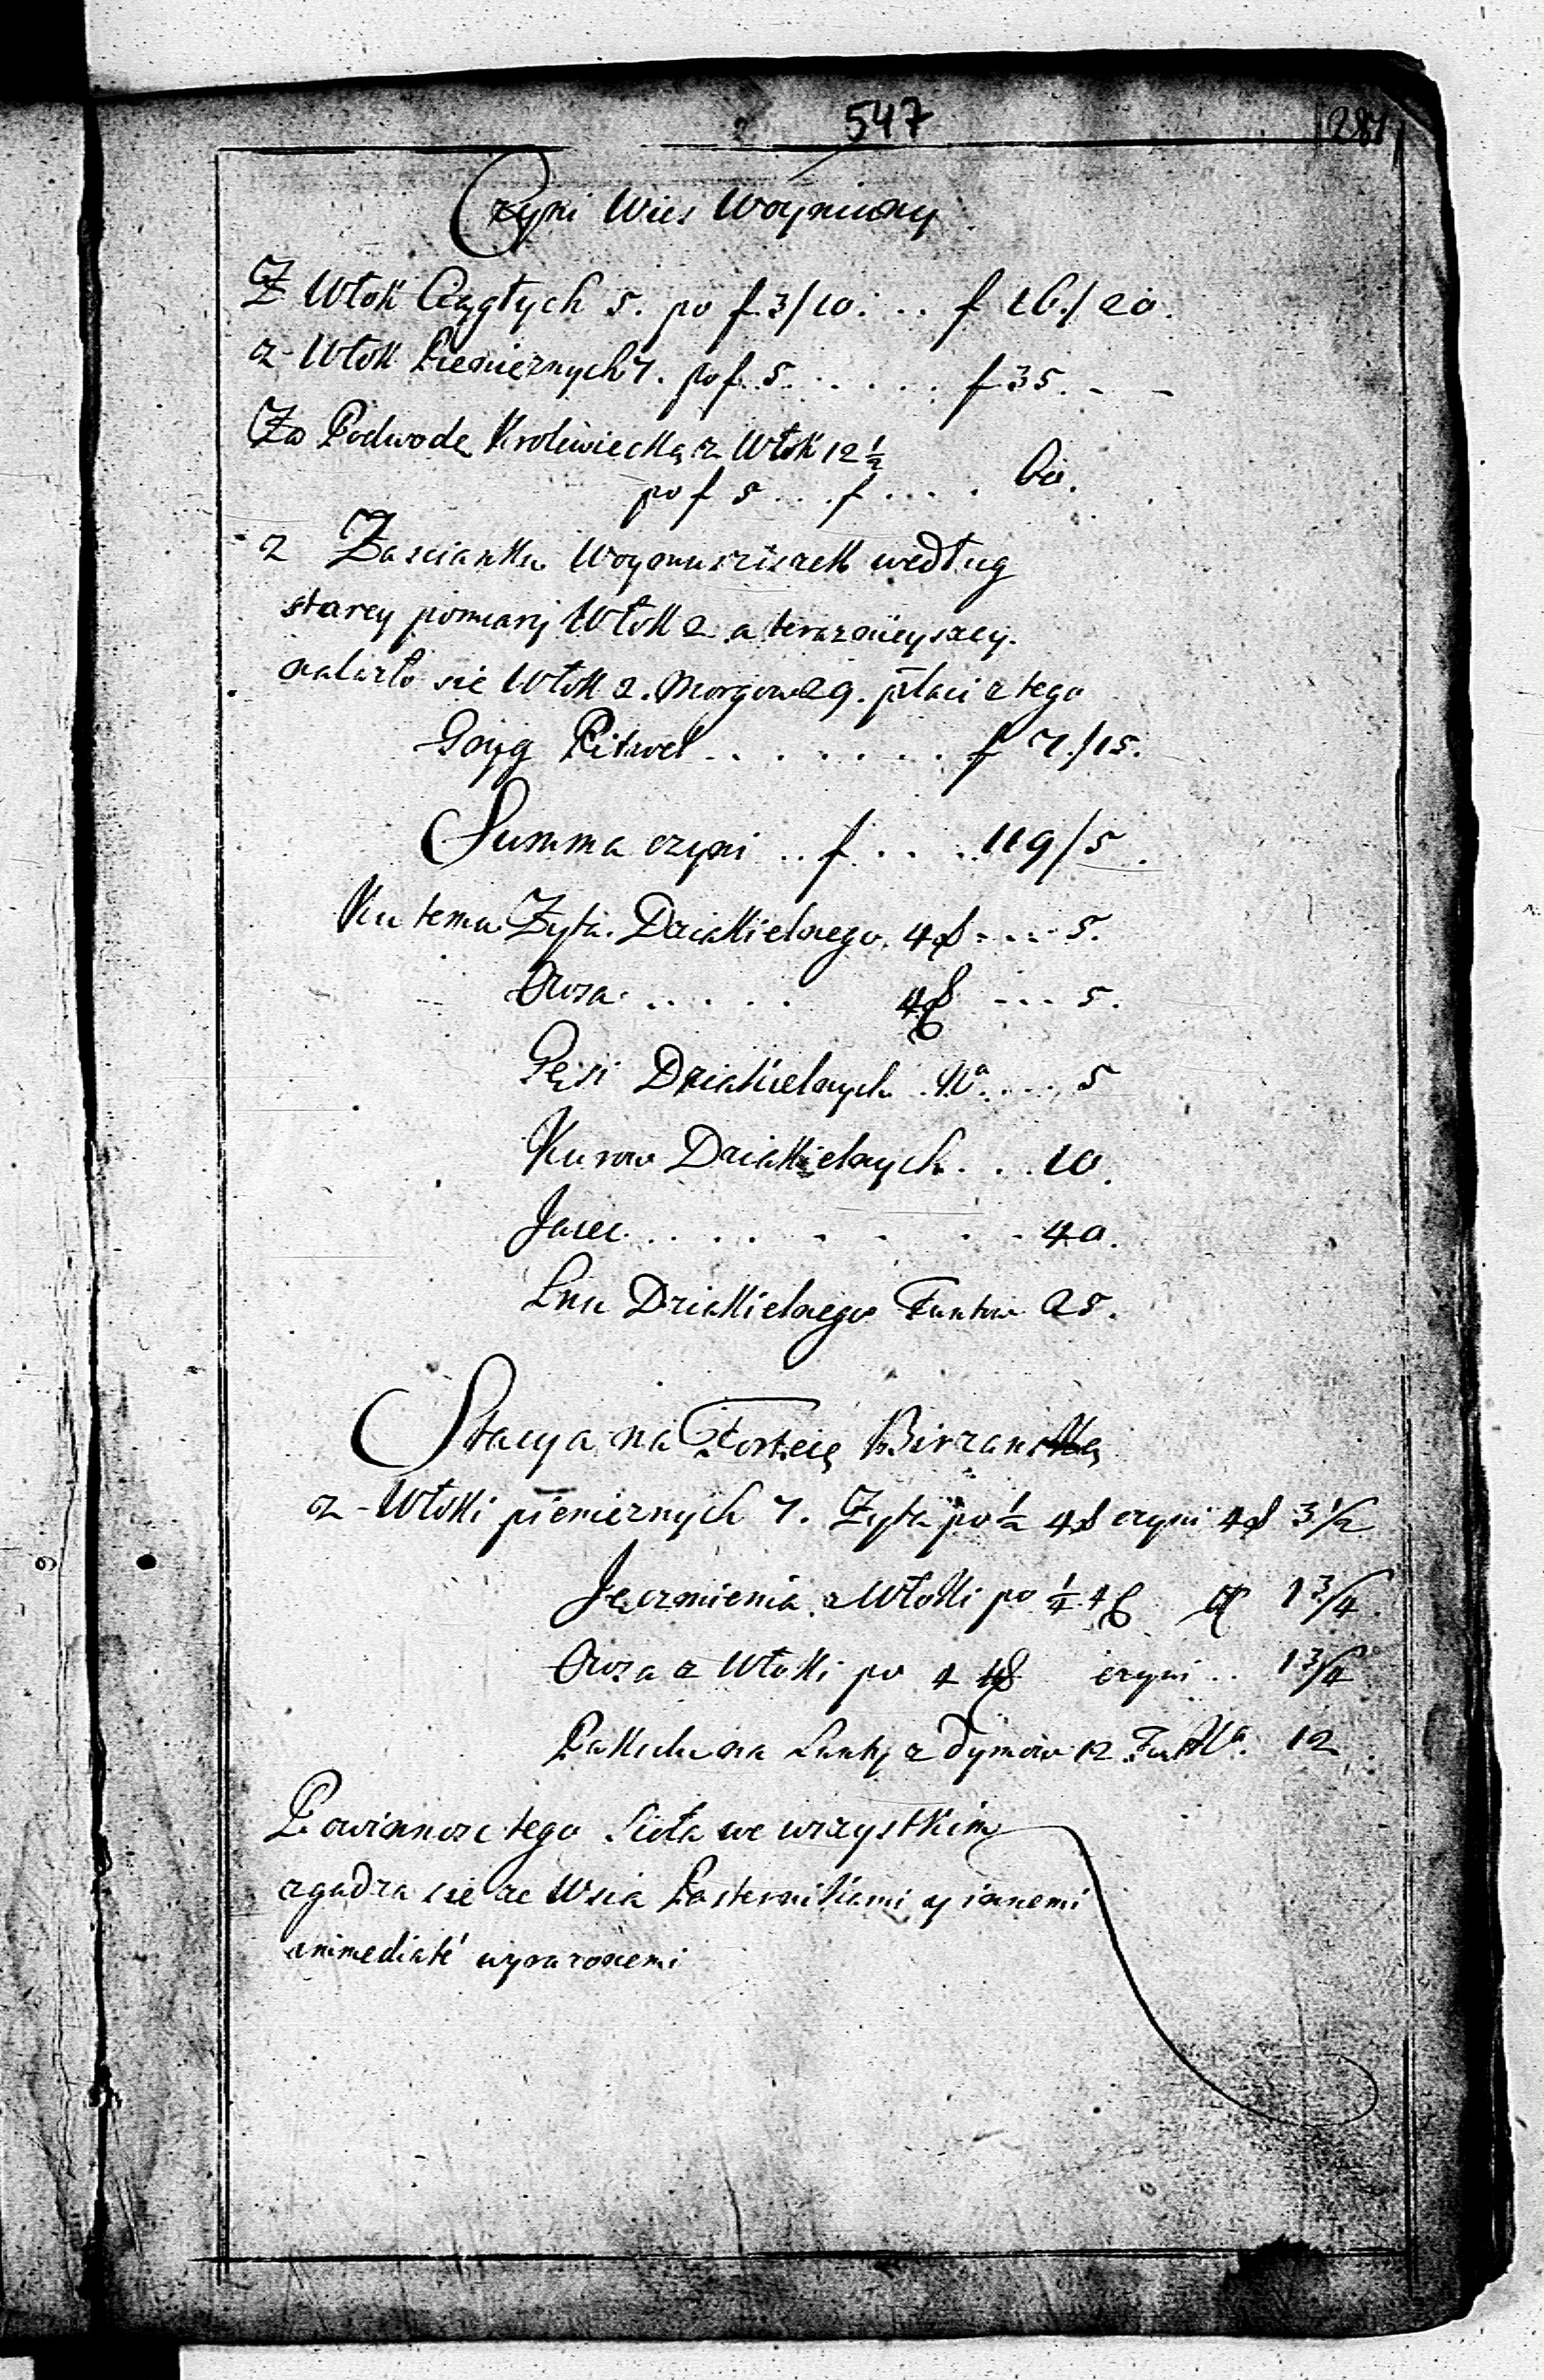 547
281
Czyni Wies Woyniuny
Z Włok Ciągłych 5. po f 3/10. .. f 16/20.
z Włok Pieniężnych 7. po f. 5. . . . . . f 35. - -
Za Podwodę Krolewiecką z Włok 12 ½
po f 5 . . . f . . . . 60.
z Zascianku Woymusziszek według
starey pomiary Włok 2 a teraznieyszey
nalazło się Włok 2. Morgow 29. płaci z tego
Gryg Pitwel . . . . . . . f 7/15.
Summa czyni .. f . . . 119/5.
Ku temu Zyta Dziakielnego . . . 5.
Owsa . . . . . . . . 5.
Gęsi Dziakielnych No. . . . 5
Kurow Dziakielnych . . . 10.
Jaiec . . . . . . . . 40.
Lnu Dziakielnego Funtow 25.
Stacya na Fortecę Birzanską
z Włoki pieniężnych 7. Zyta po ½ czyni 3 ½
Jęczmienia z Włoki po ¼ 1 ¾
Owsa z Włoki po czyni .. 1 ¾
Pakuł na Lunty z Dymow 12. No. 12
Powinnosc tego Sioła we wszystkim
zgadza się ze Wsia Pasternikami y innemi
immediaté wyrazonemi